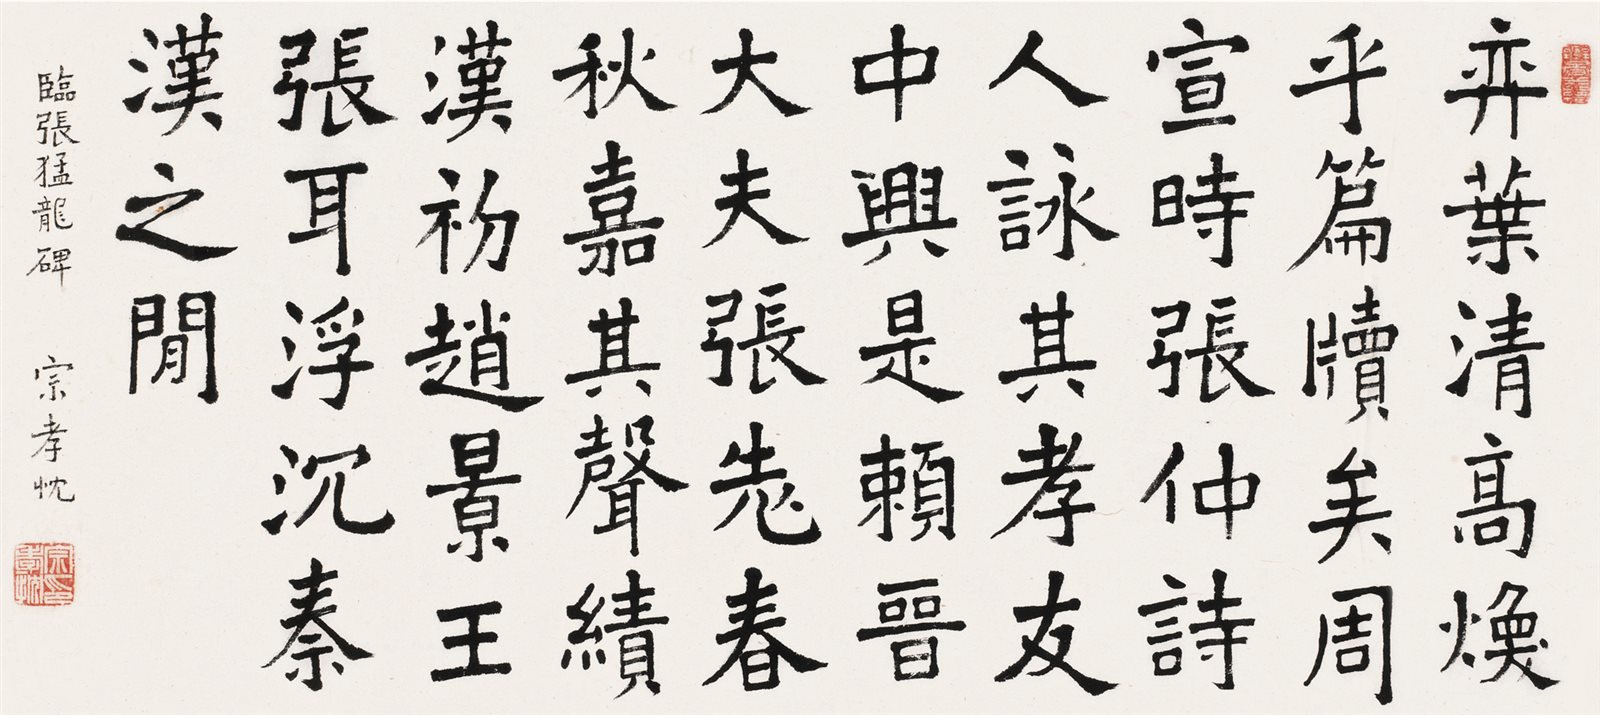 弈葉清高煥
乎篇牘矣周
宣時張仲詩
人詠其孝友
中興是賴晉
大夫張老春
秋嘉其聲績
漢初趙景王
張耳浮沉秦
漢之閒
臨張猛龍碑 宗孝忱